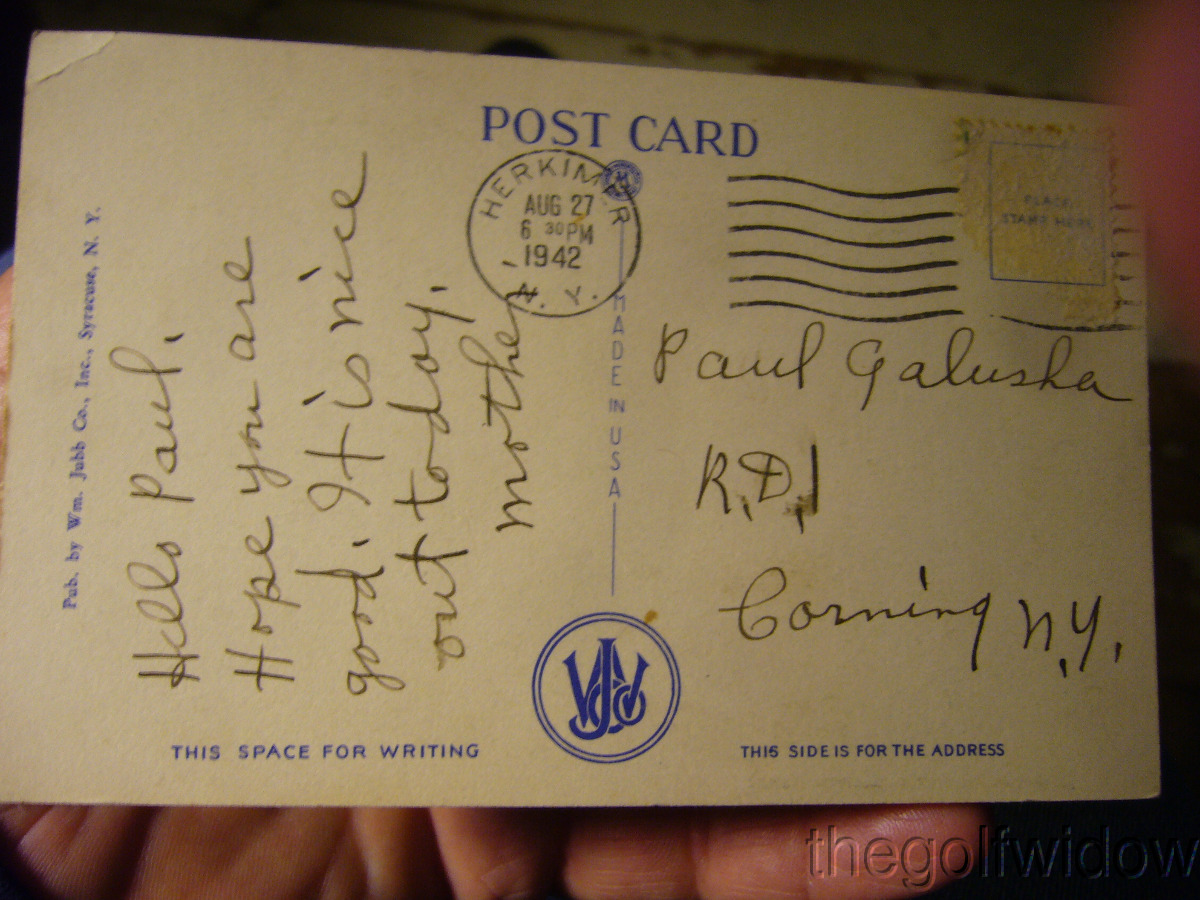 POST CARD
HERKIMER
AUG 27
6 30PM
1942
N. Y.
PLACE
STAMP HERE
Pub. by Wm. Jubb Co., Inc., Syracuse, N. Y.
Hello Paul.
Hope you are
good. It is nice
out today.
Mother
MADE IN USA
Paul Galusha
R.D.1
Corning N.Y.
WJCo
THIS SPACE FOR WRITING
THIS SIDE IS FOR THE ADDRESS
thegolfwidow